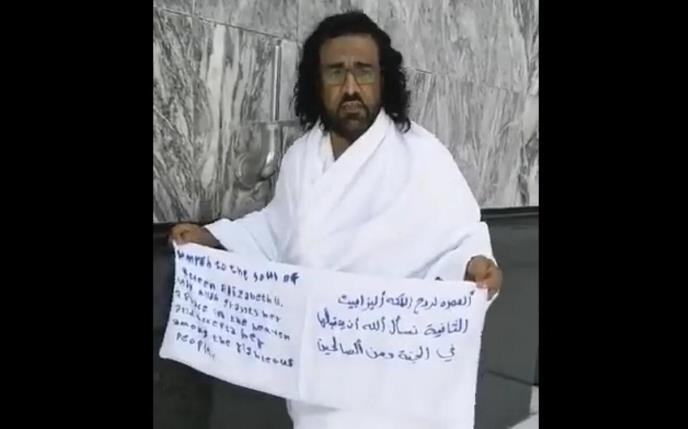 umrah to the soul of
Queen Elizabeth II,
Allah grants her
a place in the heaven
and accepts her
among the righteous
people.
العمره لروح الملكه أليزابيث
الثانية نسأل الله أن يتقبلها
في الجنة ومن الصالحين